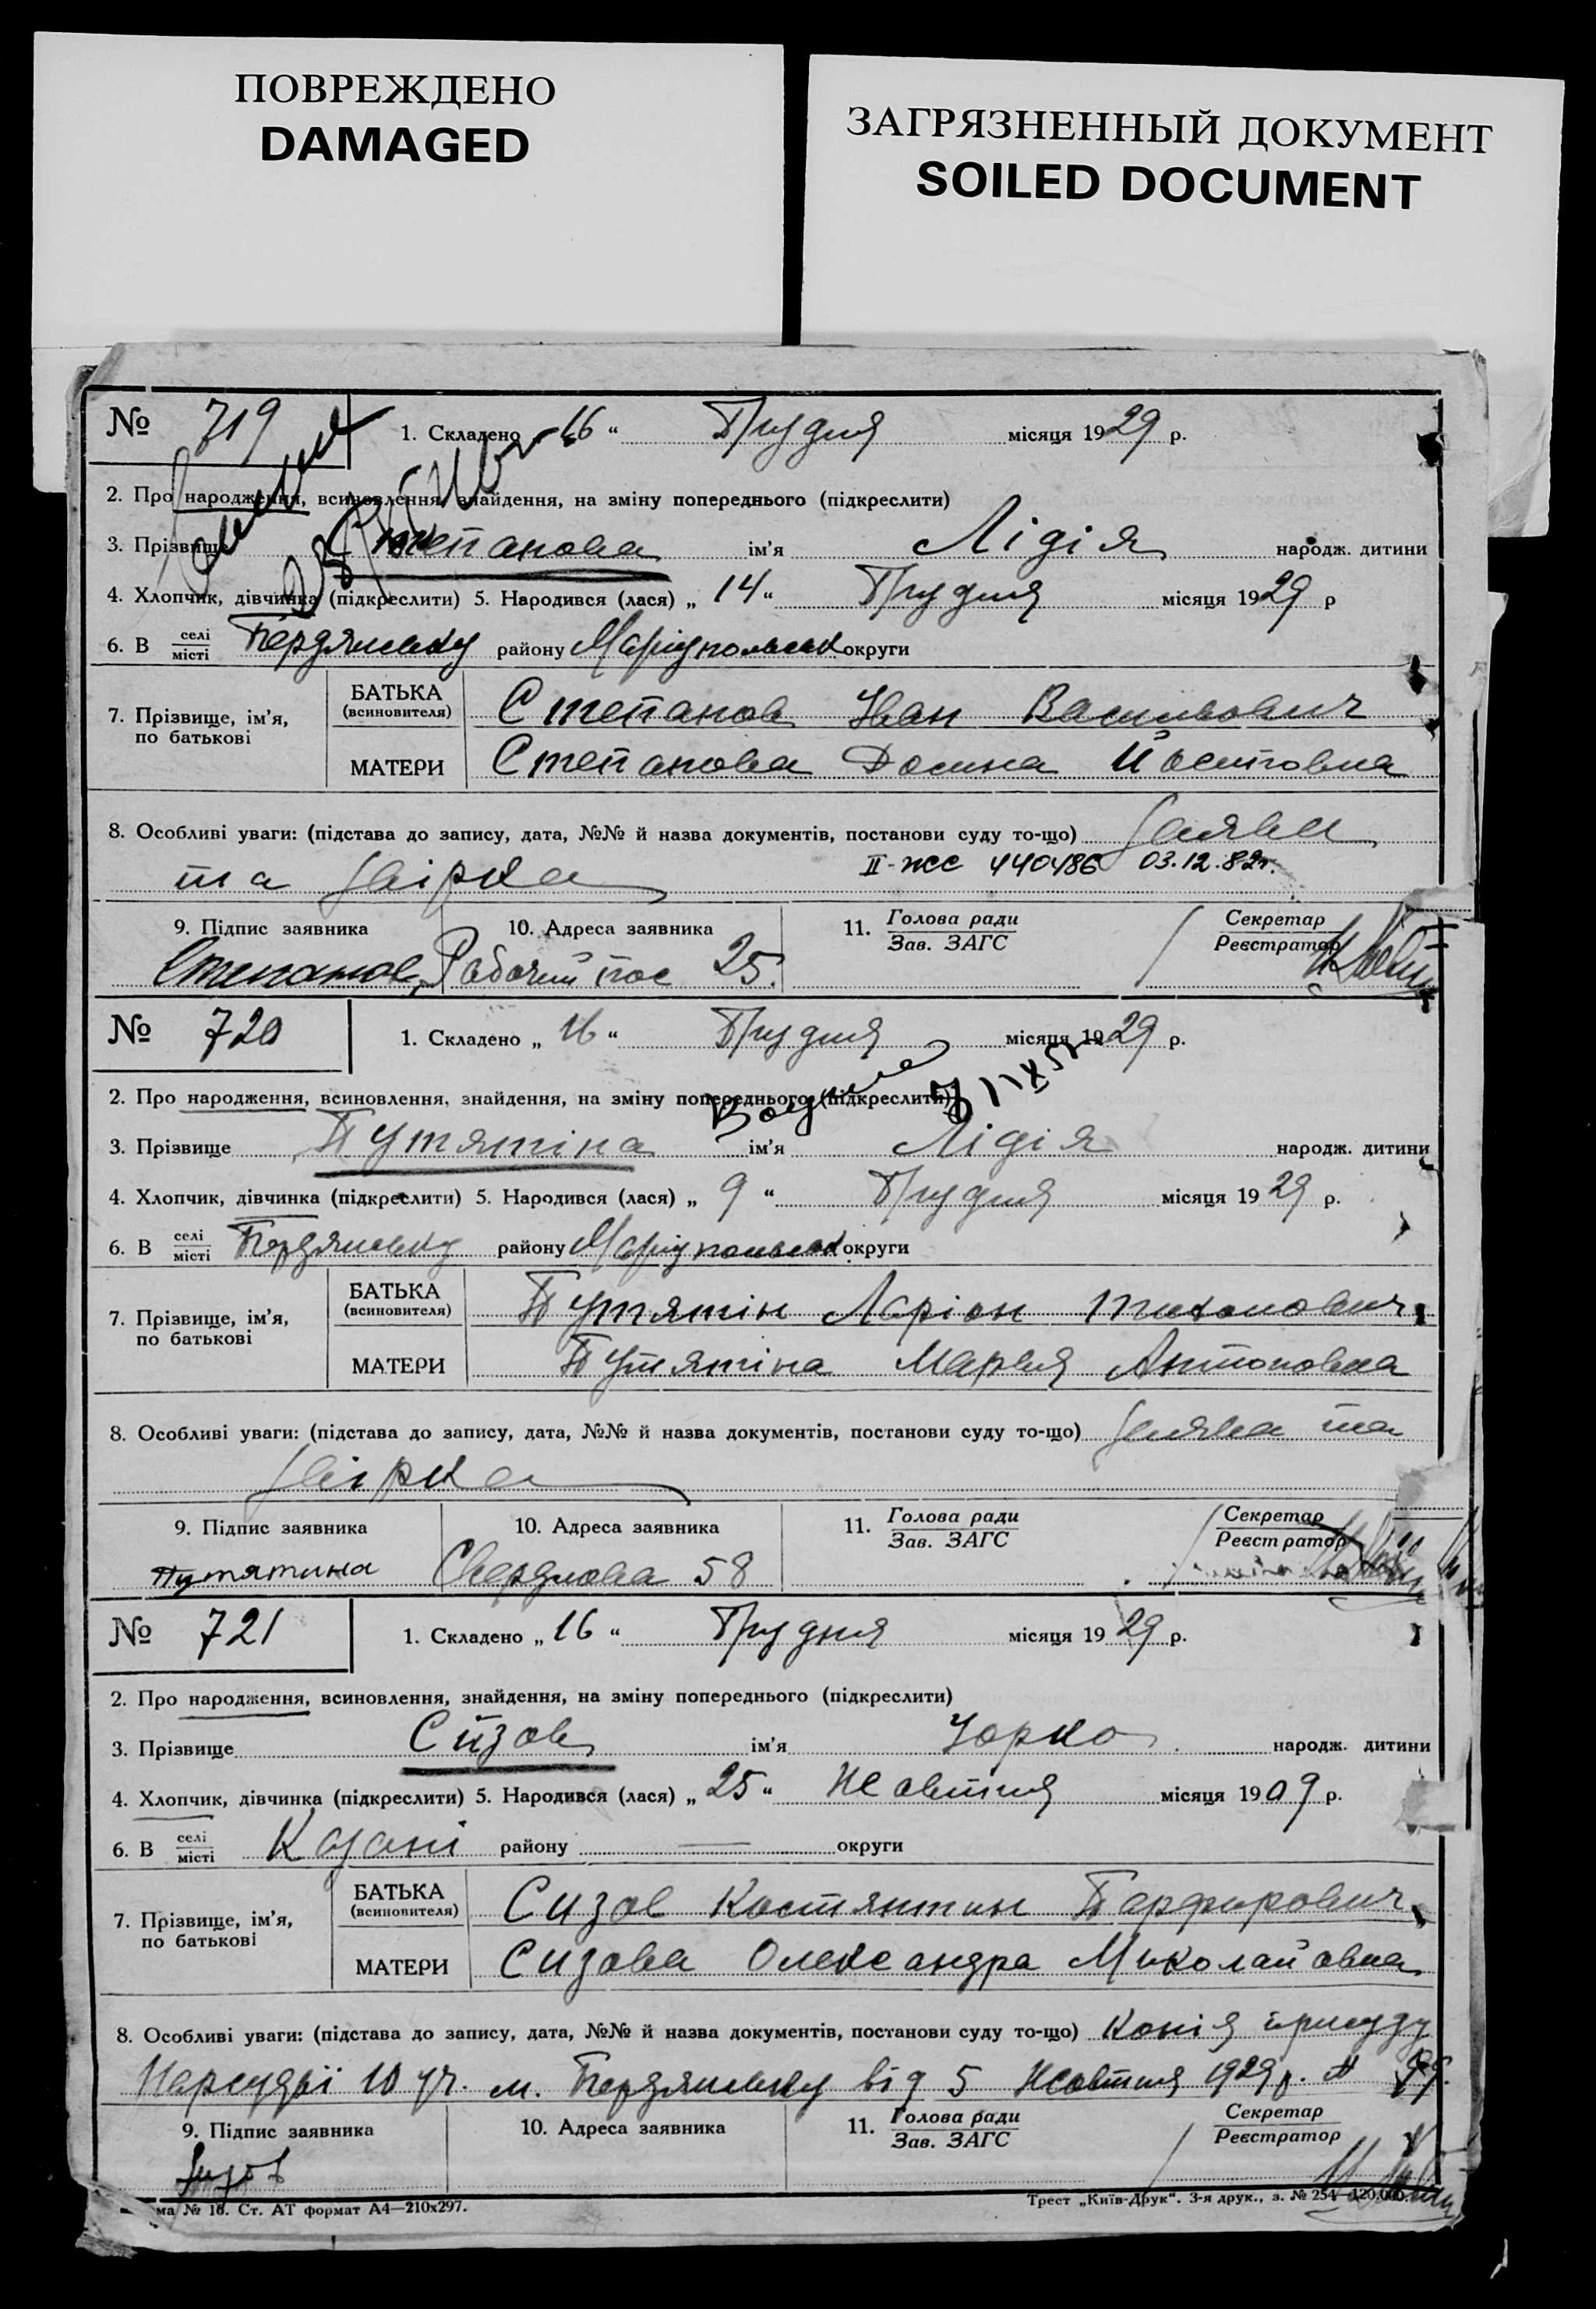 ПОВРЕЖДЕНО
DAMAGED
ЗАГРЯЗНЕННЫЙ ДОКУМЕНТ
SOILED DOCUMENT
№ 719 1. Складено „ 16 “ Грудня місяця 1929 р.
2. Про народження, всиновлення, знайдення, на зміну попереднього (підкреслити)
3. Прізвище Степанова ім’я Лідія народж. дитини
4. Хлопчик, дівчинка (підкреслити) 5. Народився (лася) „ 14 “ Грудня місяця 1929 р
6. В селі місті Бердянську району Маріупольськ округи
7. Прізвище, ім’я, по батькові
БАТЬКА (всиновителя) Степанов Іван Васильович
МАТЕРИ Степанова Йосиповна
8. Особливі уваги: (підстава до запису, дата, №№ й назва документів, постанови суду то-що) Заява
та Звірка II-ЖС 440486 03.12.82г.
9. Підпис заявника 10. Адреса заявника 11. Голова ради Зав. ЗАГС Секретар Реєстратор
Степанов Рабочий пос 25.
№ 720 1. Складено „ 16 “ Грудня місяця 1929 р.
2. Про народження, всиновлення, знайдення, на зміну попереднього (підкреслити)
3. Прізвище Путятіна ім’я Лідія народж. дитини
4. Хлопчик, дівчинка (підкреслити) 5. Народився (лася) „ 9 “ Грудня місяця 1929 р.
6. В селі місті Бердянську району Маріупольськ округи
7. Прізвище, ім’я, по батькові
БАТЬКА (всиновителя) Путятін Ларіон Тихонович
МАТЕРИ Путятіна Марья Антоновна
8. Особливі уваги: (підстава до запису, дата, №№ й назва документів, постанови суду то-що) Заява та
Звірка
9. Підпис заявника 10. Адреса заявника 11. Голова ради Зав. ЗАГС Секретар Реєстратор
Путятина Свердлова 58
№ 721 1. Складено „ 16 “ Грудня місяця 1929 р.
2. Про народження, всиновлення, знайдення, на зміну попереднього (підкреслити)
3. Прізвище Сизов ім’я Юрко народж. дитини
4. Хлопчик, дівчинка (підкреслити) 5. Народився (лася) „ 25 “ Жовтня місяця 1909 р.
6. В селі місті Казані району — округи
7. Прізвище, ім’я, по батькові
БАТЬКА (всиновителя) Сизов Костянтин Парфирович
МАТЕРИ Сизова Олександра Миколайовна
8. Особливі уваги: (підстава до запису, дата, №№ й назва документів, постанови суду то-що) Копія присуду
Нарсудді 10 уч. м. Бердянську від 5 Жовтня 1929 р. №
9. Підпис заявника 10. Адреса заявника 11. Голова ради Зав. ЗАГС Секретар Реєстратор
Сизов
ма № 18. Ст. АТ формат А4—210х297. Трест „Київ-Друк“. 3-я друк., з. № 254—120.000.